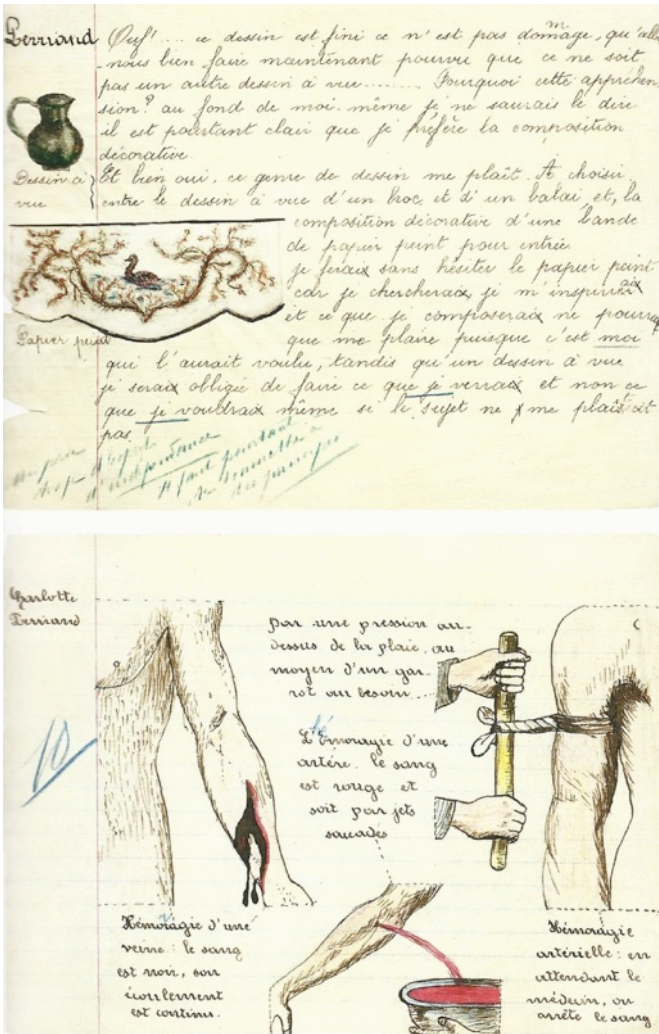 Perriand
Ouf!.... ce dessin est fini ce n'est pas domage, qu'allons
m
nous bien faire maintenant pourvu que ce ne soit
pas un autre dessin à vue......... Pourquoi cette appréhen-
sion? au fond de moi-même je ne saurais le dire
il est pourtant clair que je préfère la composition
décorative.
Dessin à
vue
Et bien oui, ce genre de dessin me plaît. A choisir
entre le dessin à vue d'un broc et d'un balai et, la
composition décorative d'une bande
de papier peint pour entrée
je ferais sans hésiter le papier peint
car je chercherais, je m'inspirerais
et ce que je composerais ne pourrait
Papier peint
que me plaire puisque c'est moi
qui l'aurait voulu, tandis qu'un dessin à vue
je serais obligée de faire ce que je verrais et non ce
que je voudrais même si le sujet ne me plait
pas.
un peu
trop d'esprit
d'indépendance
Il faut pourtant
se soumettre à
des principes
Charlotte
Perriand
10
par une pression au-
dessus de la plaie, au
moyen d'un gar-
rot au besoin....
L'émoragie d'une
hé
artère. le sang
est rouge et
soit par jets
saccadés
Hémoragie d'une
veine: le sang
est noir, son
écoulement
est continu.
Hémoragie
artérielle: en
attendant le
médecin, on
arrête le sang